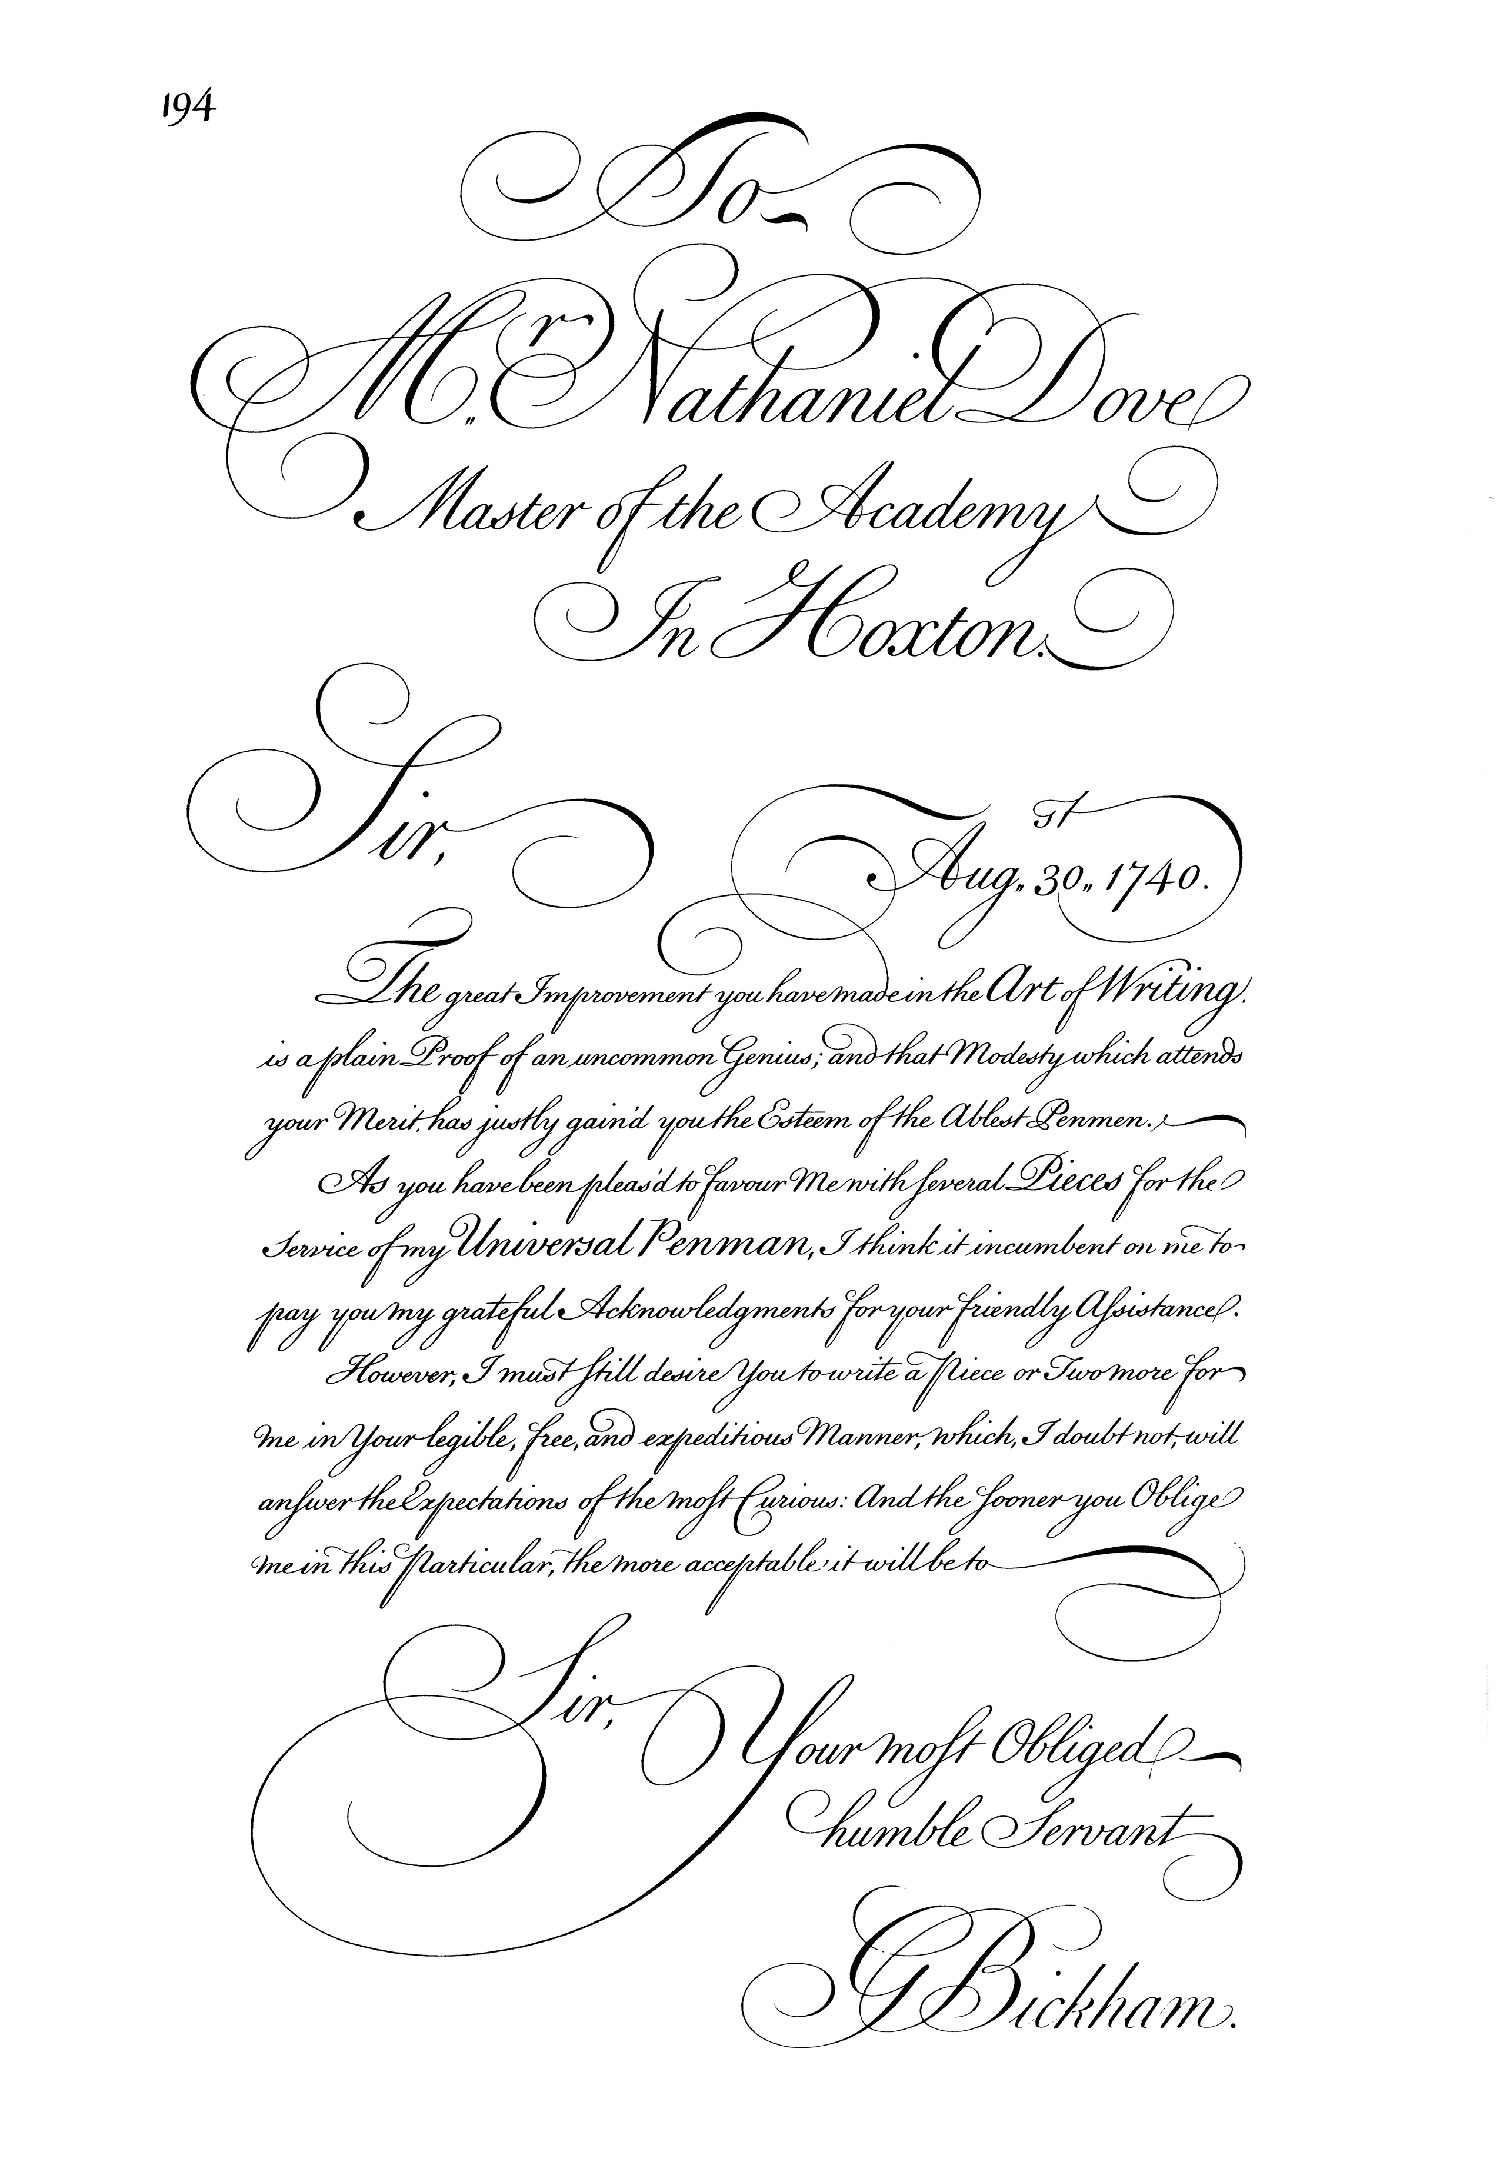 194
To
Mr. Nathaniel Dove
Master of the Academy
In Hoxton.
Sir,
st
Aug. 30. 1740.
The great Improvement you have made in the Art of Writing.
is a plain Proof of an uncommon Genius; and that Modesty which attends
your Merit, has justly gain'd you the Esteem of the Ablest Penmen.
As you have been pleas'd to favour Me with ſeveral Pieces for the
Service of my Universal Penman, I think it incumbent on me to
pay you my grateful Acknowledgments for your friendly Aſsistance.
However, I must ſtill desire You to write a Piece or Two more for
me in Your legible, free, and expeditious Manner, which, I doubt not, will
anſwer the Expectations of the moſt Curious: And the ſooner you Oblige
me in this Particular, the more acceptable it will be to
Sir,
Your moſt Obliged
humble Servant
G Bickham.